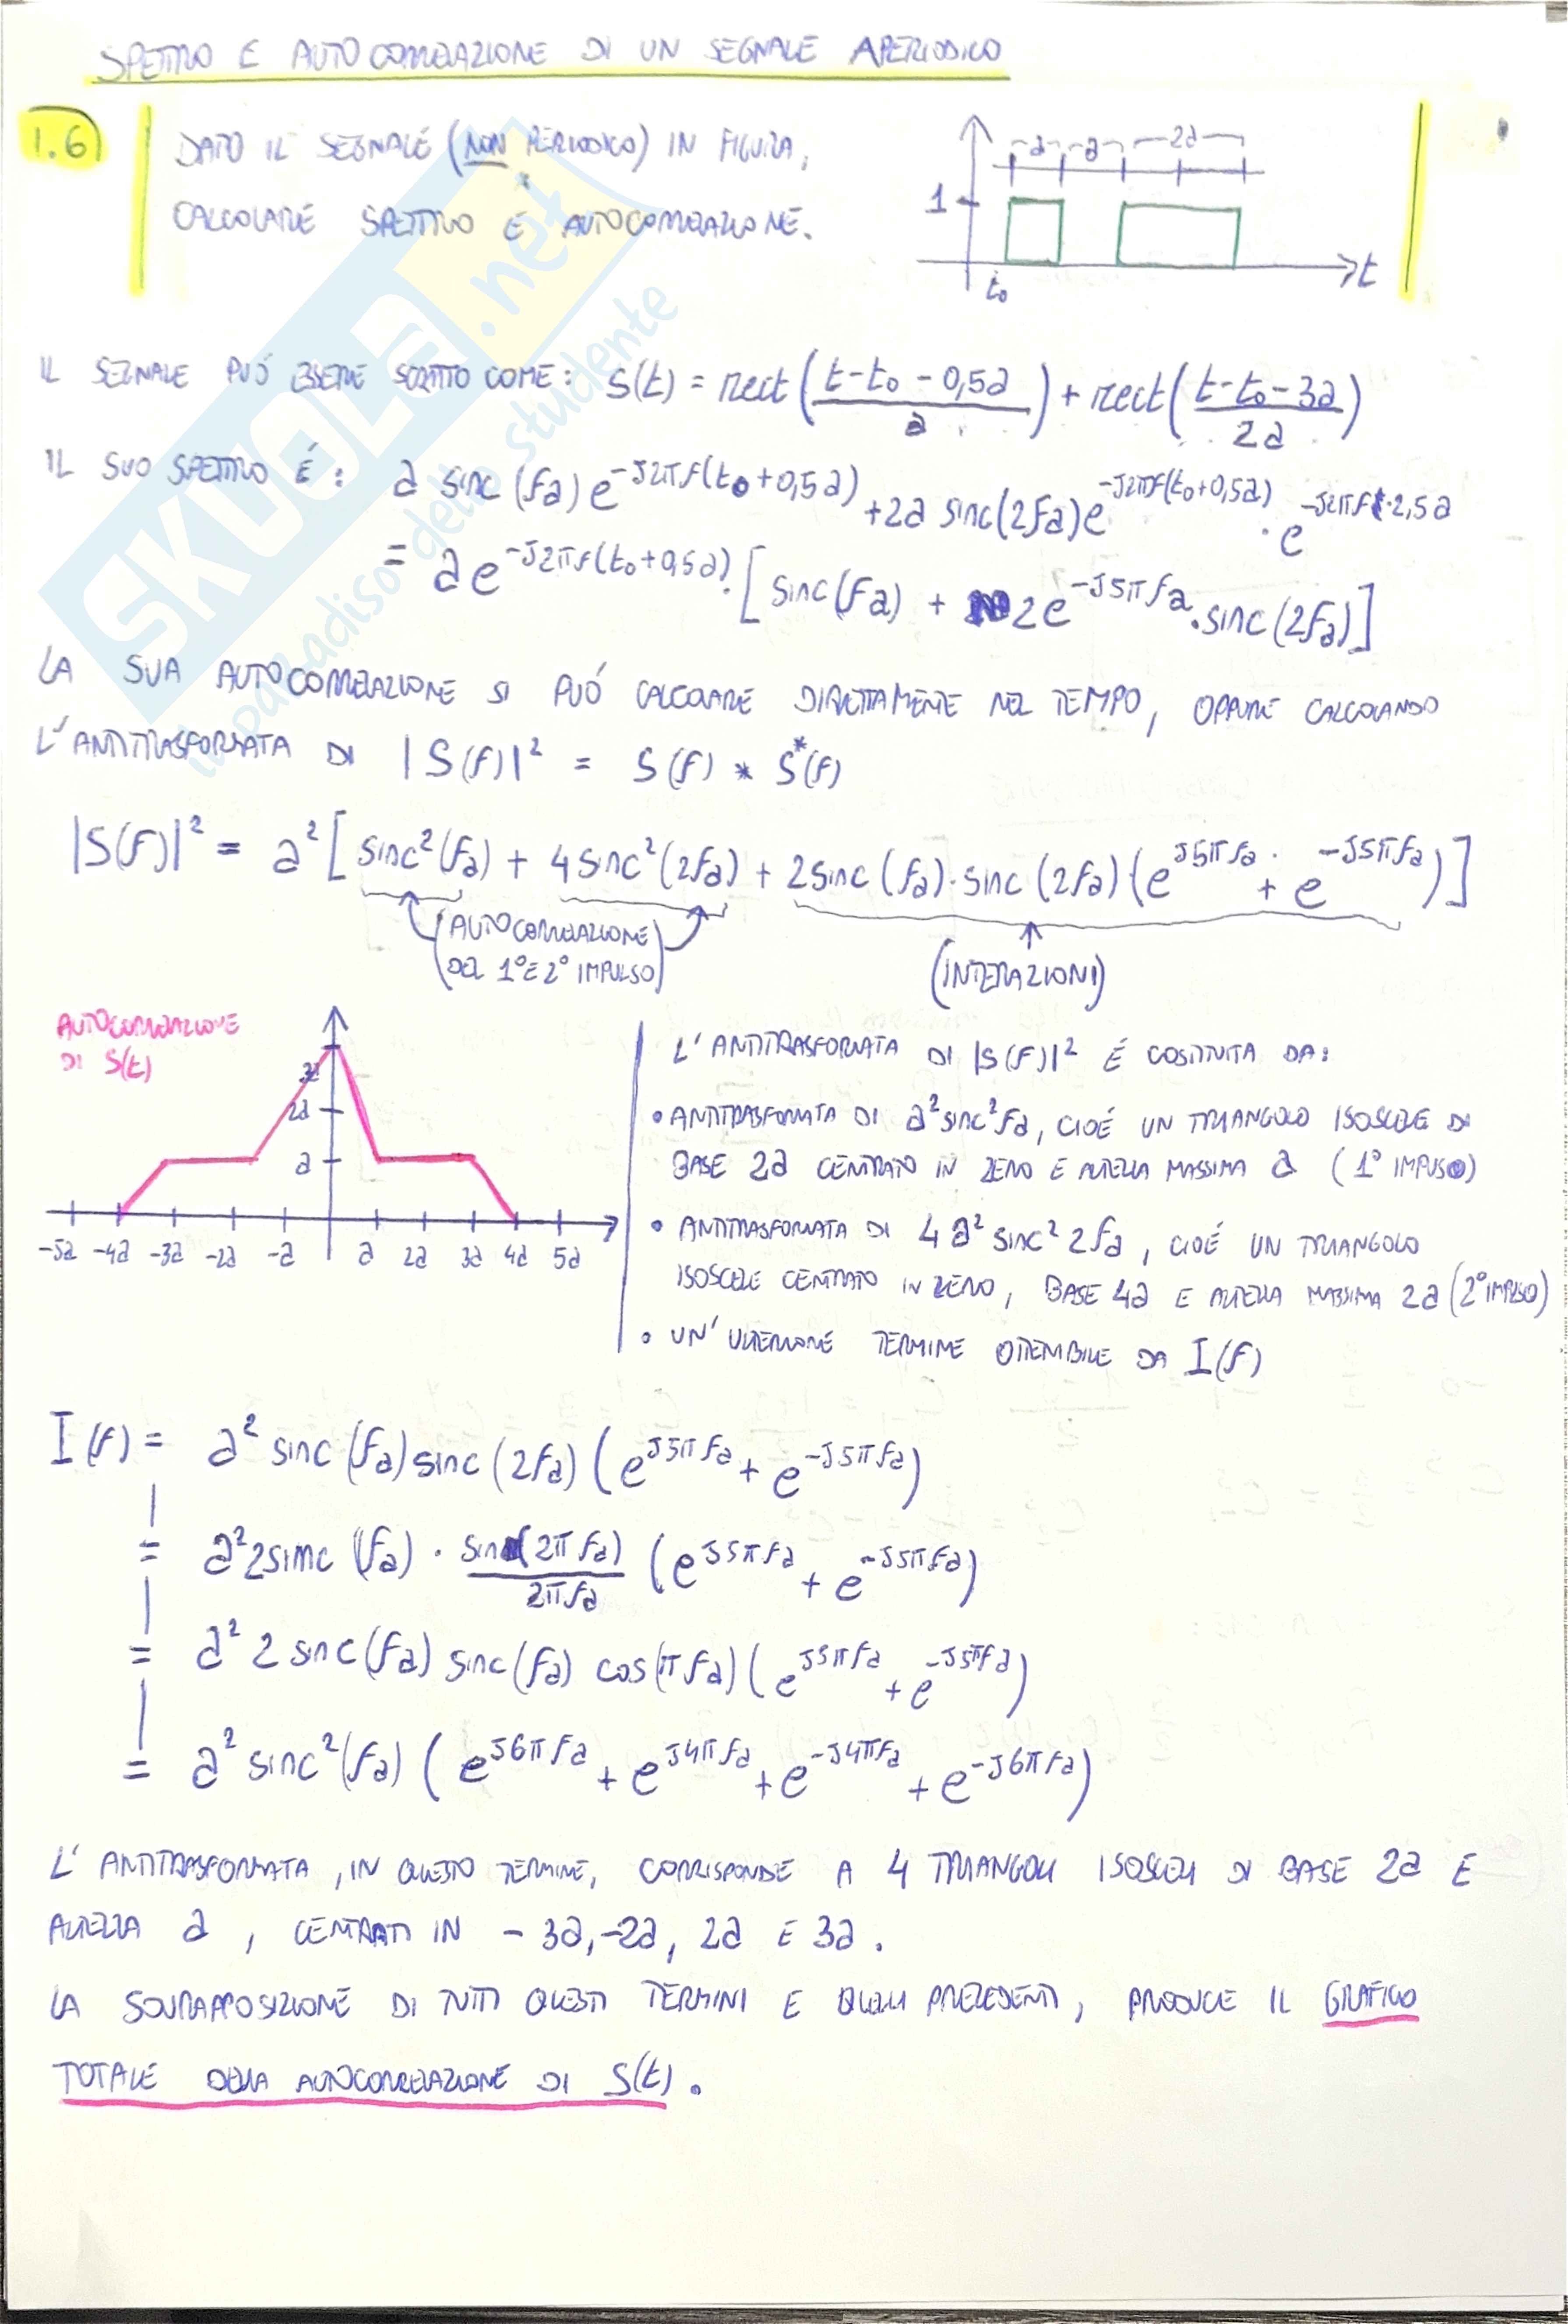 SPETTRO E AUTOCORRELAZIONE DI UN SEGNALE APERIODICO
1.6 DATO IL SEGNALE (NON PERIODICO) IN FIGURA,
CALCOLARE SPETTRO E AUTOCORRELAZIONE.
a a 2a
1
t₀ t
IL SEGNALE PUÓ ESSERE SCRITTO COME: S(t) = rect((t-t₀-0,5a)/a) + rect((t-t₀-3a)/2a)
IL SUO SPETTRO É: a sinc(fa)e^(-J2πf(t₀+0,5a)) + 2a sinc(2fa)e^(-J2πf(t₀+0,5a)) · e^(-J2πf·2,5a)
= a e^(-J2πf(t₀+0,5a)) · [sinc(fa) + 2e^(-J5πfa) · sinc(2fa)]
LA SUA AUTOCORRELAZIONE SI PUÓ CALCOLARE DIRETTAMENTE NEL TEMPO, OPPURE CALCOLANDO
L'ANTITRASFORMATA DI |S(f)|² = S(f) * S*(f)
|S(f)|² = a² [sinc²(fa) + 4sinc²(2fa) + 2sinc(fa)·sinc(2fa)(e^(J5πfa) + e^(-J5πfa))]
(AUTOCORRELAZIONE
DEL 1° E 2° IMPULSO)
(INTERAZIONI)
AUTOCORRELAZIONE
DI S(t)
3a
2a
a
-5a -4a -3a -2a -a a 2a 3a 4a 5a
L'ANTITRASFORMATA DI |S(f)|² É COSTITUITA DA:
• ANTITRASFORMATA DI a²sinc²fa, CIOÉ UN TRIANGOLO ISOSCELE DI
BASE 2a CENTRATO IN ZERO E ALTEZZA MASSIMA a (1° IMPULSO)
• ANTITRASFORMATA DI 4a²sinc²2fa, CIOÉ UN TRIANGOLO
ISOSCELE CENTRATO IN ZERO, BASE 4a E ALTEZZA MASSIMA 2a (2° IMPULSO)
• UN'ULTERIORE TERMINE OTTENIBILE DA I(f)
I(f) = a² sinc(fa)sinc(2fa)(e^(J5πfa) + e^(-J5πfa))
= a²2sinc(fa) · sin(2πfa)/2πfa (e^(J5πfa) + e^(-J5πfa))
= a² 2 sinc(fa) sinc(fa) cos(πfa)(e^(J5πfa) + e^(-J5πfa))
= a² sinc²(fa)(e^(J6πfa) + e^(J4πfa) + e^(-J4πfa) + e^(-J6πfa))
L'ANTITRASFORMATA, IN QUESTO TERMINE, CORRISPONDE A 4 TRIANGOLI ISOSCELI DI BASE 2a E
ALTEZZA a, CENTRATI IN -3a, -2a, 2a E 3a.
LA SOVRAPPOSIZIONE DI TUTTI QUESTI TERMINI E QUELLI PRECEDENTI, PRODUCE IL GRAFICO
TOTALE DELLA AUTOCORRELAZIONE DI S(t).
SKUOLA.net
il paradiso dello studente